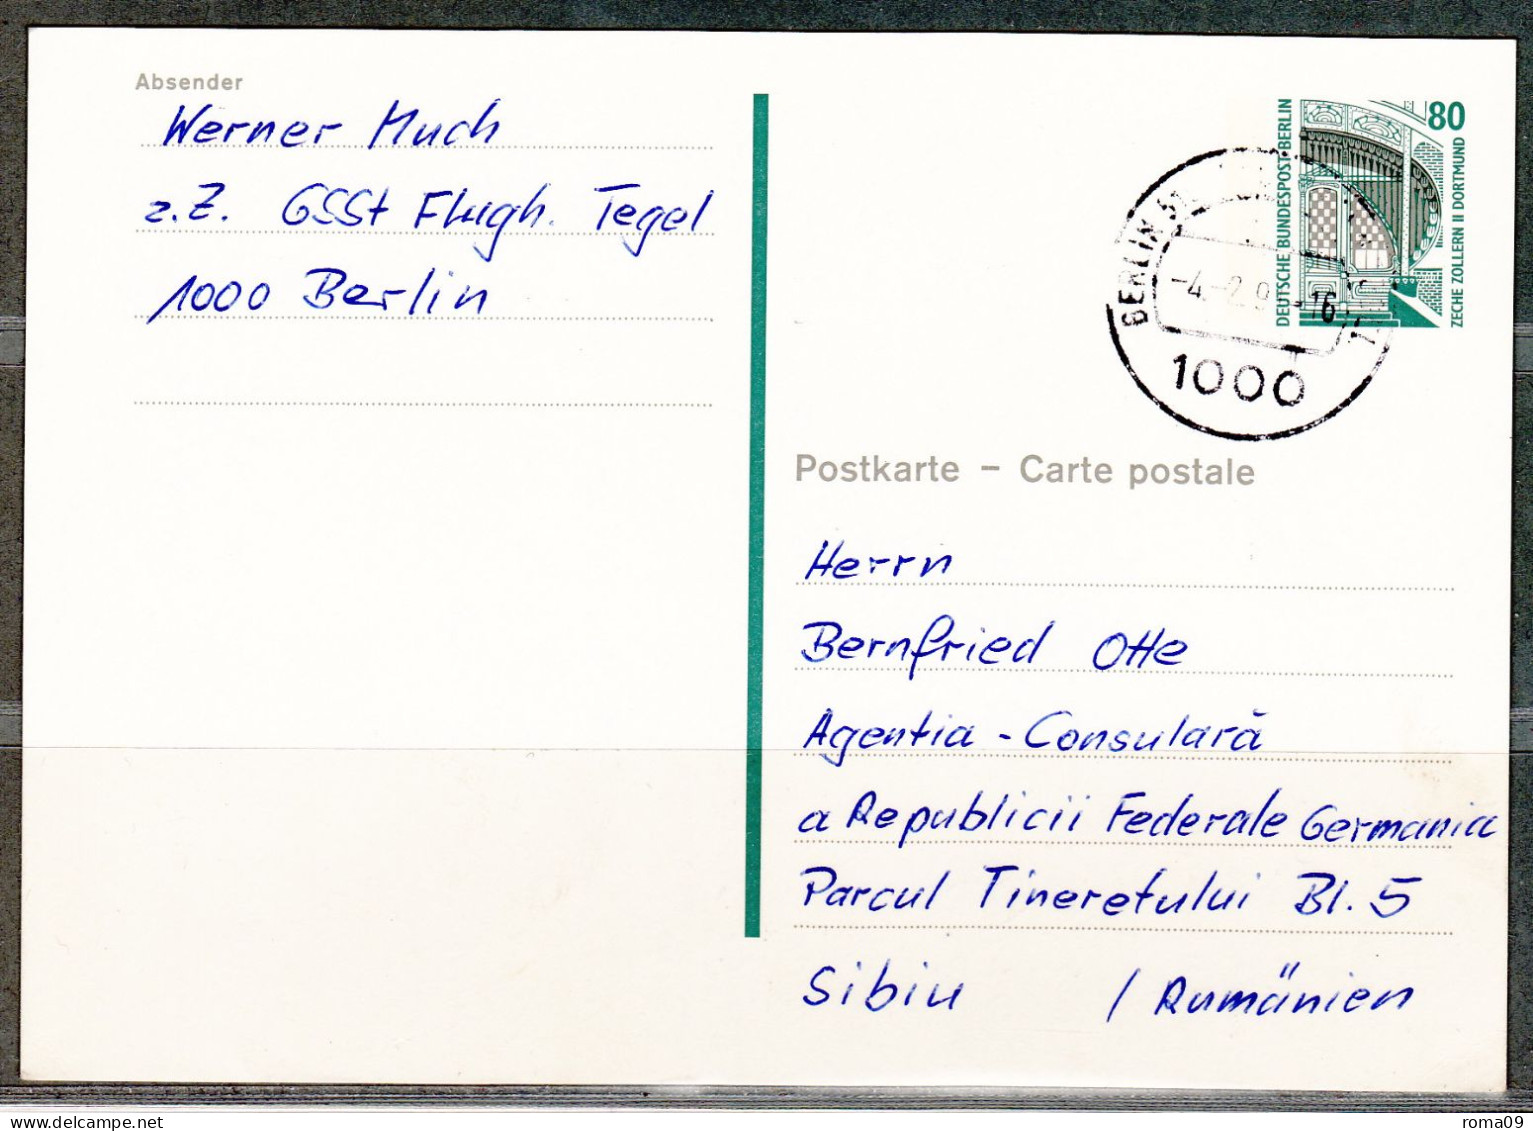 Absender
Werner Much
z.Z. GSSt Flugh. Tegel
1000 Berlin
80
DEUTSCHE BUNDESPOST BERLIN
ZECHE ZOLLERN II DORTMUND
BERLIN 51
-4.-2.9 -16
1000
Postkarte – Carte postale
Herrn
Bernfried Otte
Agentia - Consulară
a Republicii Federale Germania
Parcul Tineretului Bl. 5
Sibiu / Rumänien
delcampe.net
roma09